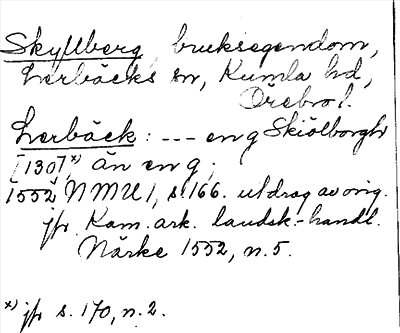 Skyllberg, bruksegendom,
Lerbäcks sn, Kumla hd,
Örebro l.
Lerbäck: --- en g Skiölborgh
[1307]x), än en g;
1552 NMU 1, s. 166. utdrag av orig.
jfr Kam. ark. landsk.-handl.
Närke 1552, n. 5.
x) jfr s. 170, n. 2.